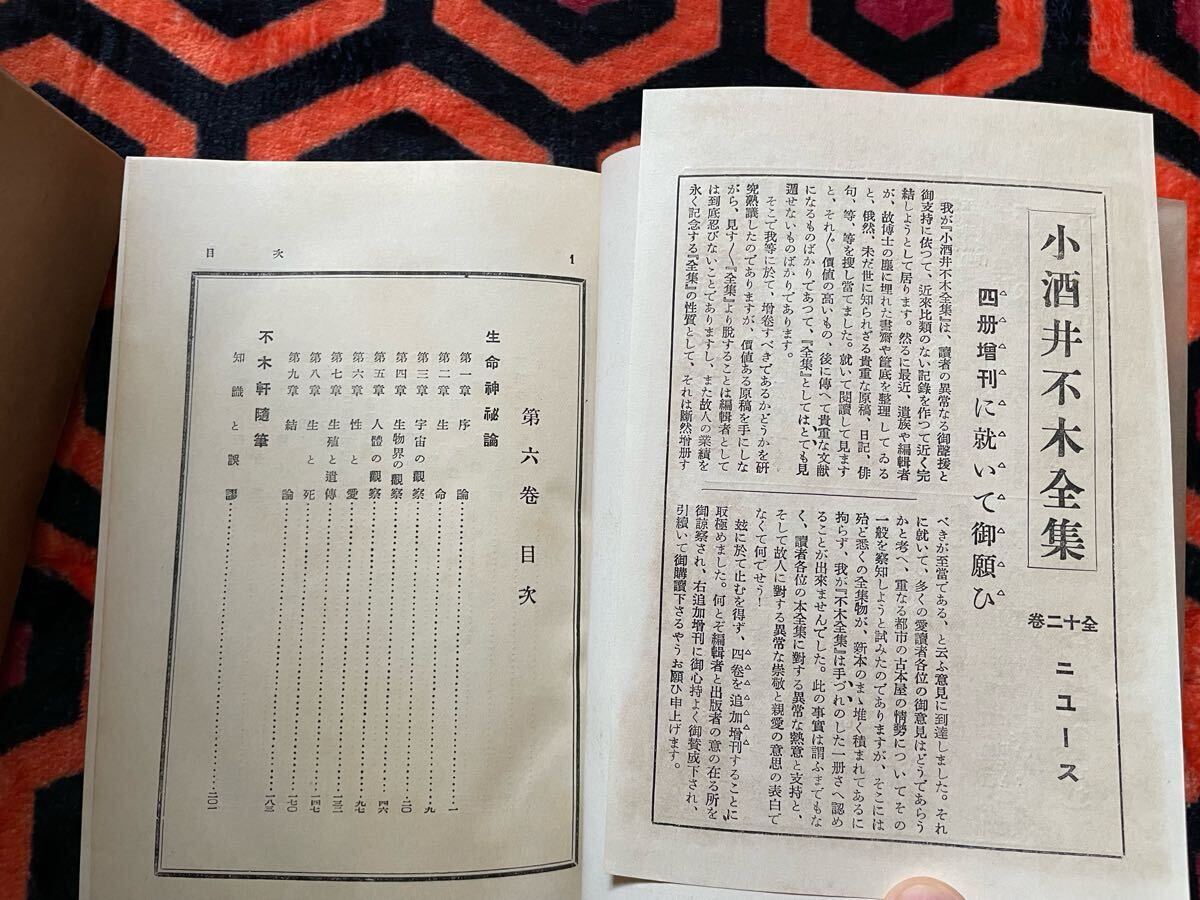 小酒井不木全集
全十二卷
ニュース
四册增刊に就いて御願ひ
我が『小酒井不木全集』は、讀者の異常なる御聲援と
御支持に依つて、近來比類のない記錄を作つて近く完
結しようとして居ります。然るに最近、遺族や編輯者
が、故博士の塵に埋れた書齋や筐底を整理してゐる
と、俄然、未だ世に知られざる貴重な原稿、日記、俳
句、等、等を搜し當てました。就いて閱讀して見ます
と、それ〴〵價値の高いもの、後に傳へて貴重な文獻
になるものばかりであつて、『全集』としてはとても見
逎せないものばかりであります。
そこで我等に於て、增卷すべきであるかどうかを硏
究熟議したのでありますが、價値ある原稿を手にしな
がら、見す〳〵『全集』より脫することは編輯者として
は到底忍びないことでありますし、また故人の業績を
永く記念する『全集』の性質として、それは斷然增册す
べきが至當である、と云ふ意見に到達しました。それ
に就いて、多くの愛讀者各位の御意見はどうであらう
かと考へ、重なる都市の古本屋の情勢についてその
一般を察知しようと試みたのでありますが、そこには
殆ど悉くの全集物が、新本のまゝ堆く積まれてあるに
拘らず、我が『不木全集』は手づれのした一册さへ認め
ることが出來ませんでした。此の事實は謂ふまでもな
く、讀者各位の本全集に對する異常な熱意と支持と、
そして故人に對する異常な崇敬と親愛の意思の表白で
なくて何でせう!
玆に於て止むを得ず、四卷を追加增刊することに
取極めました。何とぞ編輯者と出版者の意の在る所を
御諒察され、右追加增刊に御心持よく御贊成下され、
引續いて御購讀下さるやうお願ひ申上げます。
目次
1
第六卷 目次
生命神祕論
第一章 序論…………一
第二章 生命…………九
第三章 宇宙の觀察…………二〇
第四章 生物界の觀察…………四六
第五章 人體の觀察…………九七
第六章 性と愛…………一三二
第七章 生殖と遺傳…………一四七
第八章 生と死…………一七〇
第九章 結論…………一八三
不木軒隨筆
知識と誤謬…………二〇一